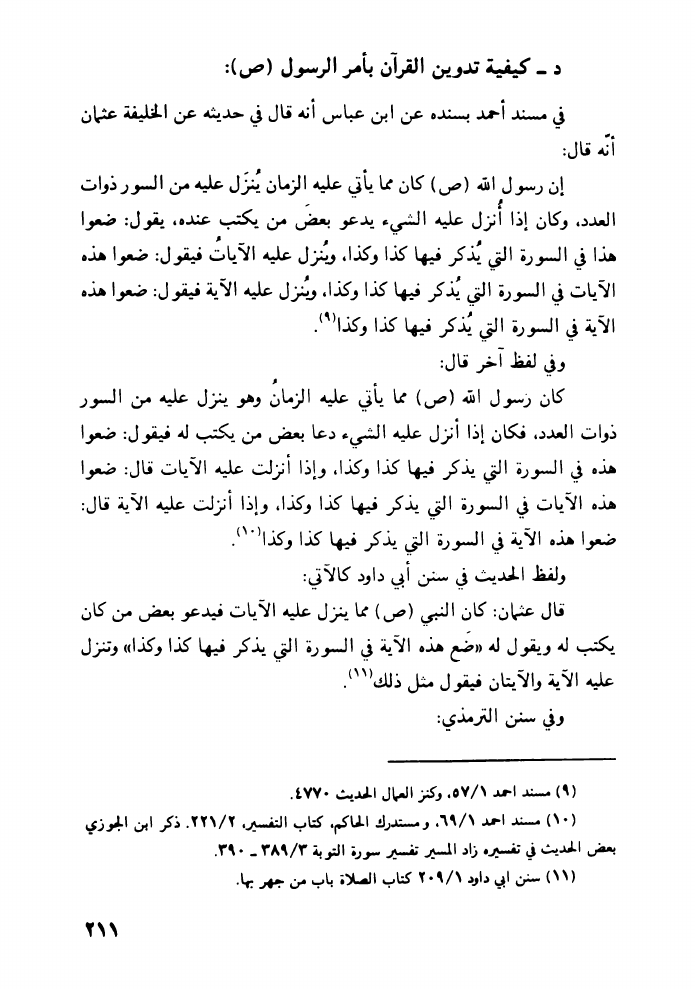 د ـ كيفية تدوين القرآن بأمر الرسول (ص):
في مسند أحمد بسنده عن ابن عباس أنه قال في حديثه عن الخليفة عثمان
أنّه قال:
إن رسول الله (ص) كان مما يأتي عليه الزمان يُنزَل عليه من السور ذوات
العدد، وكان إذا أُنزل عليه الشيء يدعو بعضَ من يكتب عنده، يقول: ضعوا
هذا في السورة التي يُذكر فيها كذا وكذا، ويُنزل عليه الآياتُ فيقول: ضعوا هذه
الآيات في السورة التي يُذكر فيها كذا وكذا، ويُنزل عليه الآية فيقول: ضعوا هذه
الآية في السورة التي يُذكر فيها كذا وكذا(٩).
وفي لفظ آخر قال:
كان رسول الله (ص) مما يأتي عليه الزمانُ وهو ينزل عليه من السور
ذوات العدد، فكان إذا أنزل عليه الشيء دعا بعض من يكتب له فيقول: ضعوا
هذه في السورة التي يذكر فيها كذا وكذا، وإذا أنزلت عليه الآيات قال: ضعوا
هذه الآيات في السورة التي يذكر فيها كذا وكذا، وإذا أنزلت عليه الآية قال:
ضعوا هذه الآية في السورة التي يذكر فيها كذا وكذا(١٠).
ولفظ الحديث في سنن أبي داود كالآتي:
قال عثمان: كان النبي (ص) مما ينزل عليه الآيات فيدعو بعض من كان
يكتب له ويقول له «ضَع هذه الآية في السورة التي يذكر فيها كذا وكذا» وتنزل
عليه الآية والآيتان فيقول مثل ذلك(١١).
وفي سنن الترمذي:
(٩) مسند احمد ٥٧/١، وكنز العمال الحديث ٤٧٧٠.
(١٠) مسند احمد ٦٩/١، ومستدرك الحاكم، كتاب التفسير، ٢٢١/٢. ذكر ابن الجوزي
بعض الحديث في تفسيره زاد المسير تفسير سورة التوبة ٣٨٩/٣ ـ ٣٩٠.
(١١) سنن ابي داود ٢٠٩/١ كتاب الصلاة باب من جهر بها.
٢١١